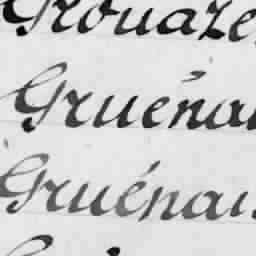 Grouaze
Gruéna
Gruénau